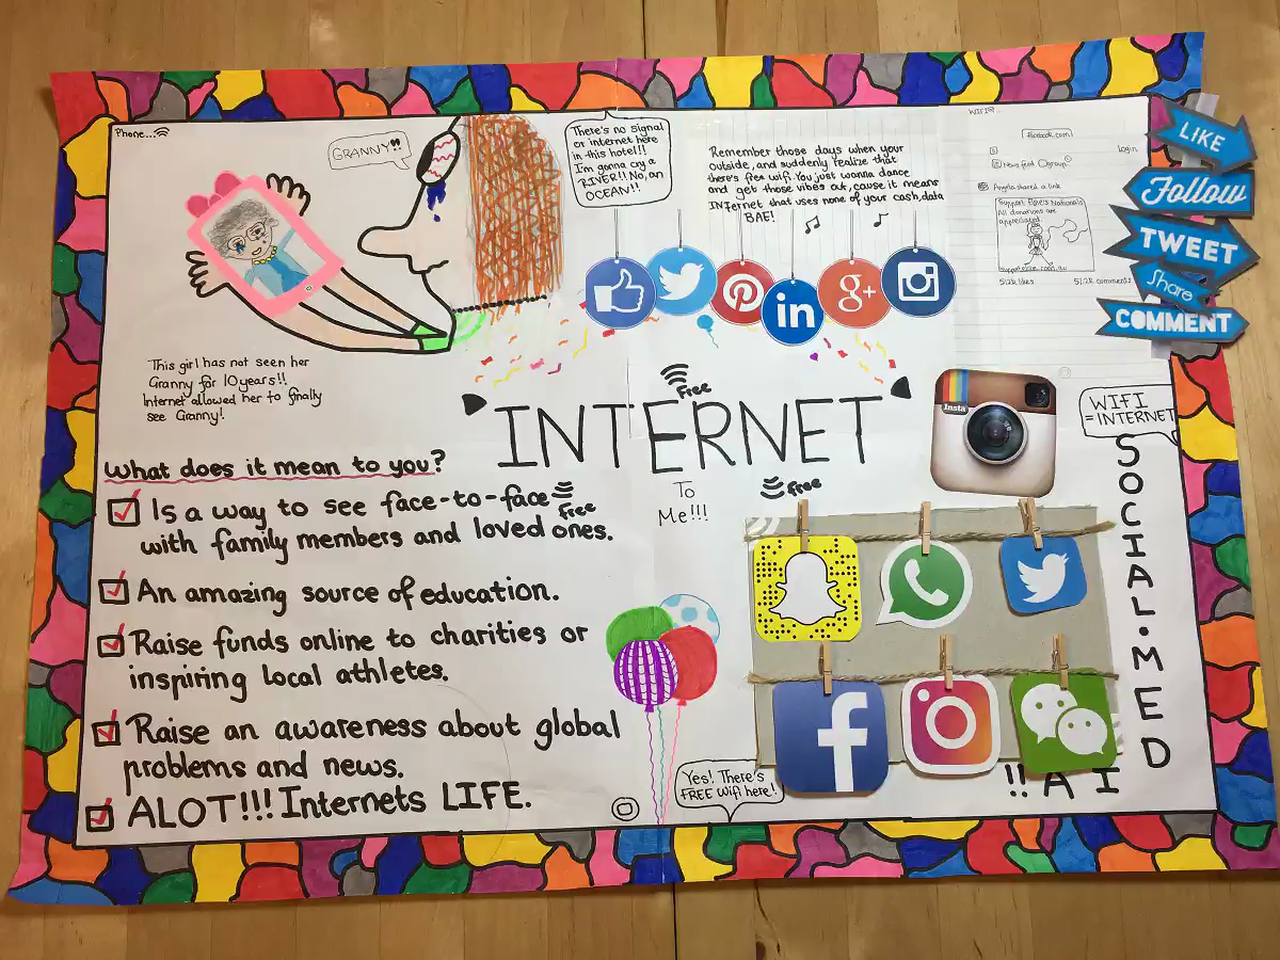 Phone...
GRANNY!!
This girl has not seen her
Granny for 10 years!!
Internet allowed her to finally
see Granny!
There's no signal
or internet here
in this hotel!!!
I'm gonna cry a
RIVER!! No, an
OCEAN!!
Remember those days when your
outside, and suddenly realize that
there's free wifi. You just wanna dance
and get those vibes out, cause it means
INternet that uses none of your cash, data
BAE!
in
g+
facebook.com
Login
News feed
Angela shared a link
All donations are
appreciated
512k likes
LIKE
Follow
TWEET
Share
COMMENT
free
INTERNET
free
To
Me!!!
Insta
WIFI
=INTERNET
SOCIAL•MEDIA!!
What does it mean to you?
Is a way to see face-to-face
free
with family members and loved ones.
An amazing source of education.
Raise funds online to charities or
inspiring local athletes.
Raise an awareness about global
problems and news.
ALOT!!! Internets LIFE.
f
Yes! There's
FREE Wifi here!